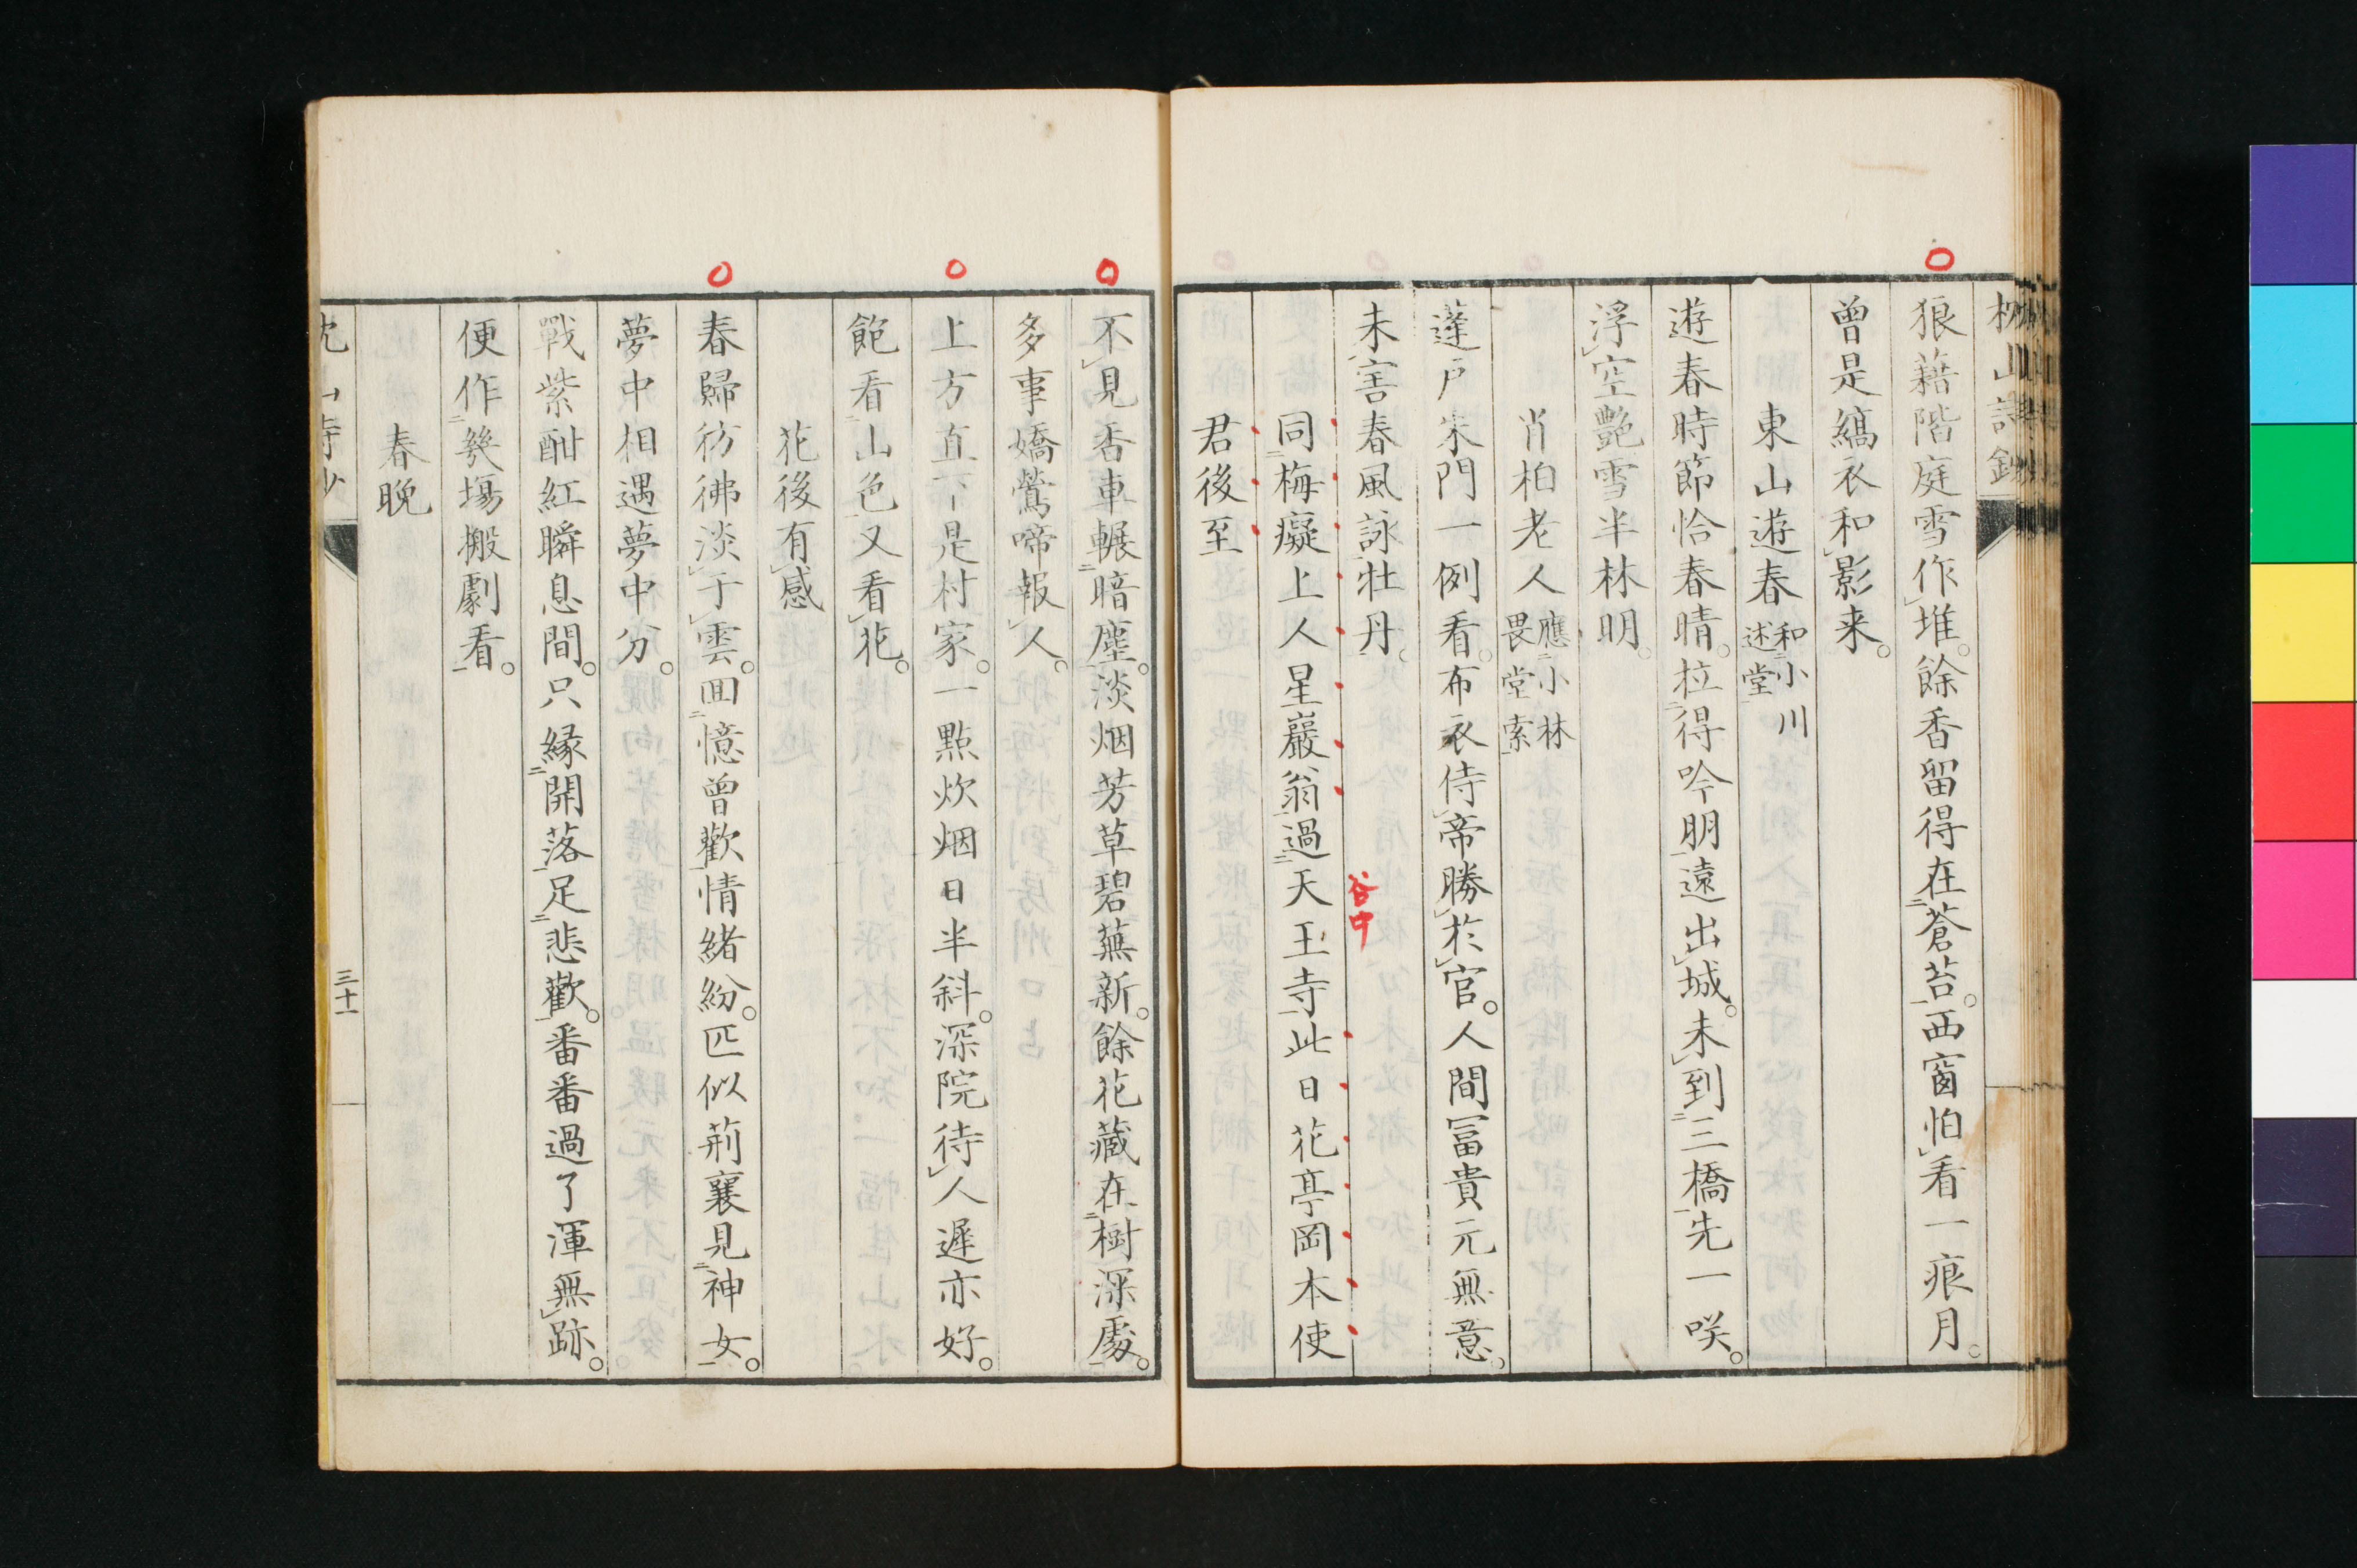 枕山詩鈔
狼藉階庭雪作堆餘香留得在蒼苔西窗怕看一痕月
曾是縞衣和影来
東山遊春和小川述堂
遊春時節恰春晴拉得吟朋遠出城未到三橋先一咲
浮空艶雪半林明
肖柏老人應小林畏堂索
蓬戶朱門一例看布衣侍帝勝於官人間冨貴元無意
未害春風詠牡丹
谷中
同梅癡上人星巖翁過天王寺此日花亭岡本使
君後至
不見香車輾暗塵淡烟芳草碧蕪新餘花藏在樹深處
多事嬌鶯啼報人
上方直下是村家一點炊烟日半斜深院待人遲亦好
飽看山色又看花
花後有感
春歸彷彿淡于雲囬憶曾歡情緒紛匹似荊襄見神女
夢中相遇夢中分
戰紫酣紅瞬息間只緣開落足悲歡番番過了渾無跡
便作幾場搬劇看
春晚
三十一